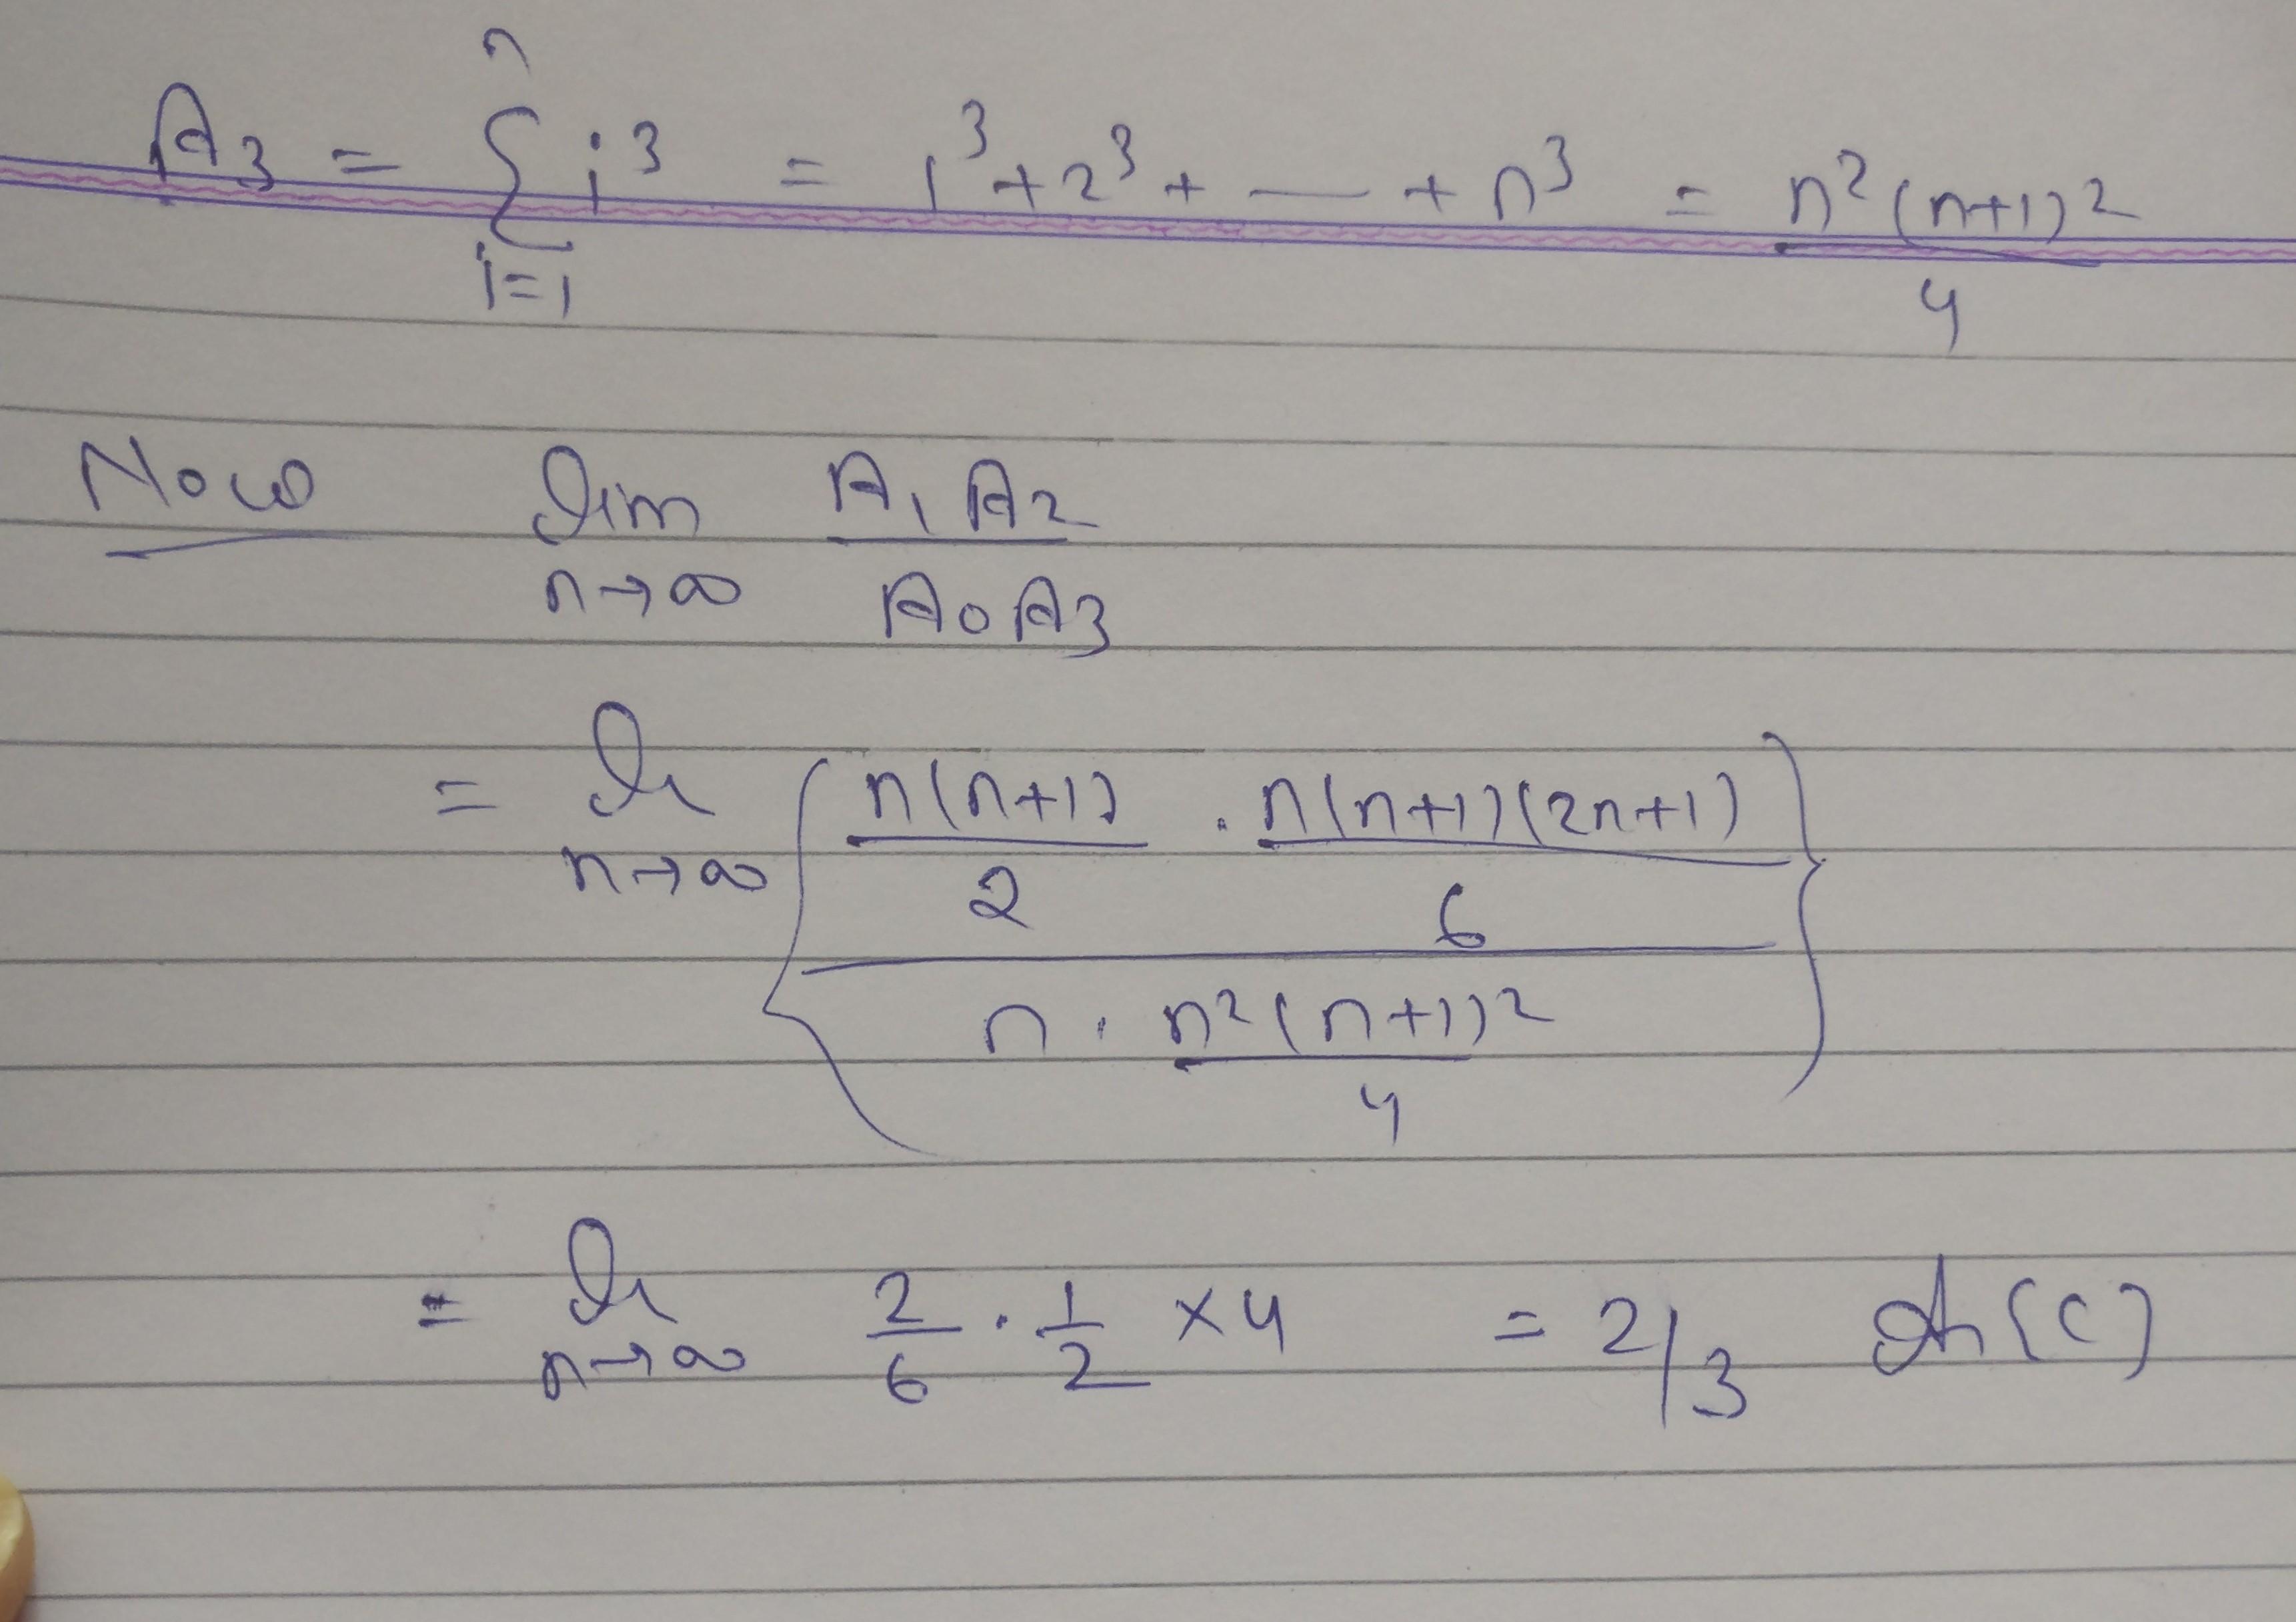 A₃ = n Σ i=1 i³ = 1³ + 2³ + — + n³ = n²(n+1)² / 4
Now lim n→∞ A₁A₂ / A₀A₃
= lt n→∞ { n(n+1)/2 · n(n+1)(2n+1)/6 / n · n²(n+1)²/4 }
= lt n→∞ 2/6 · 1/2 × 4 = 2/3 (C)